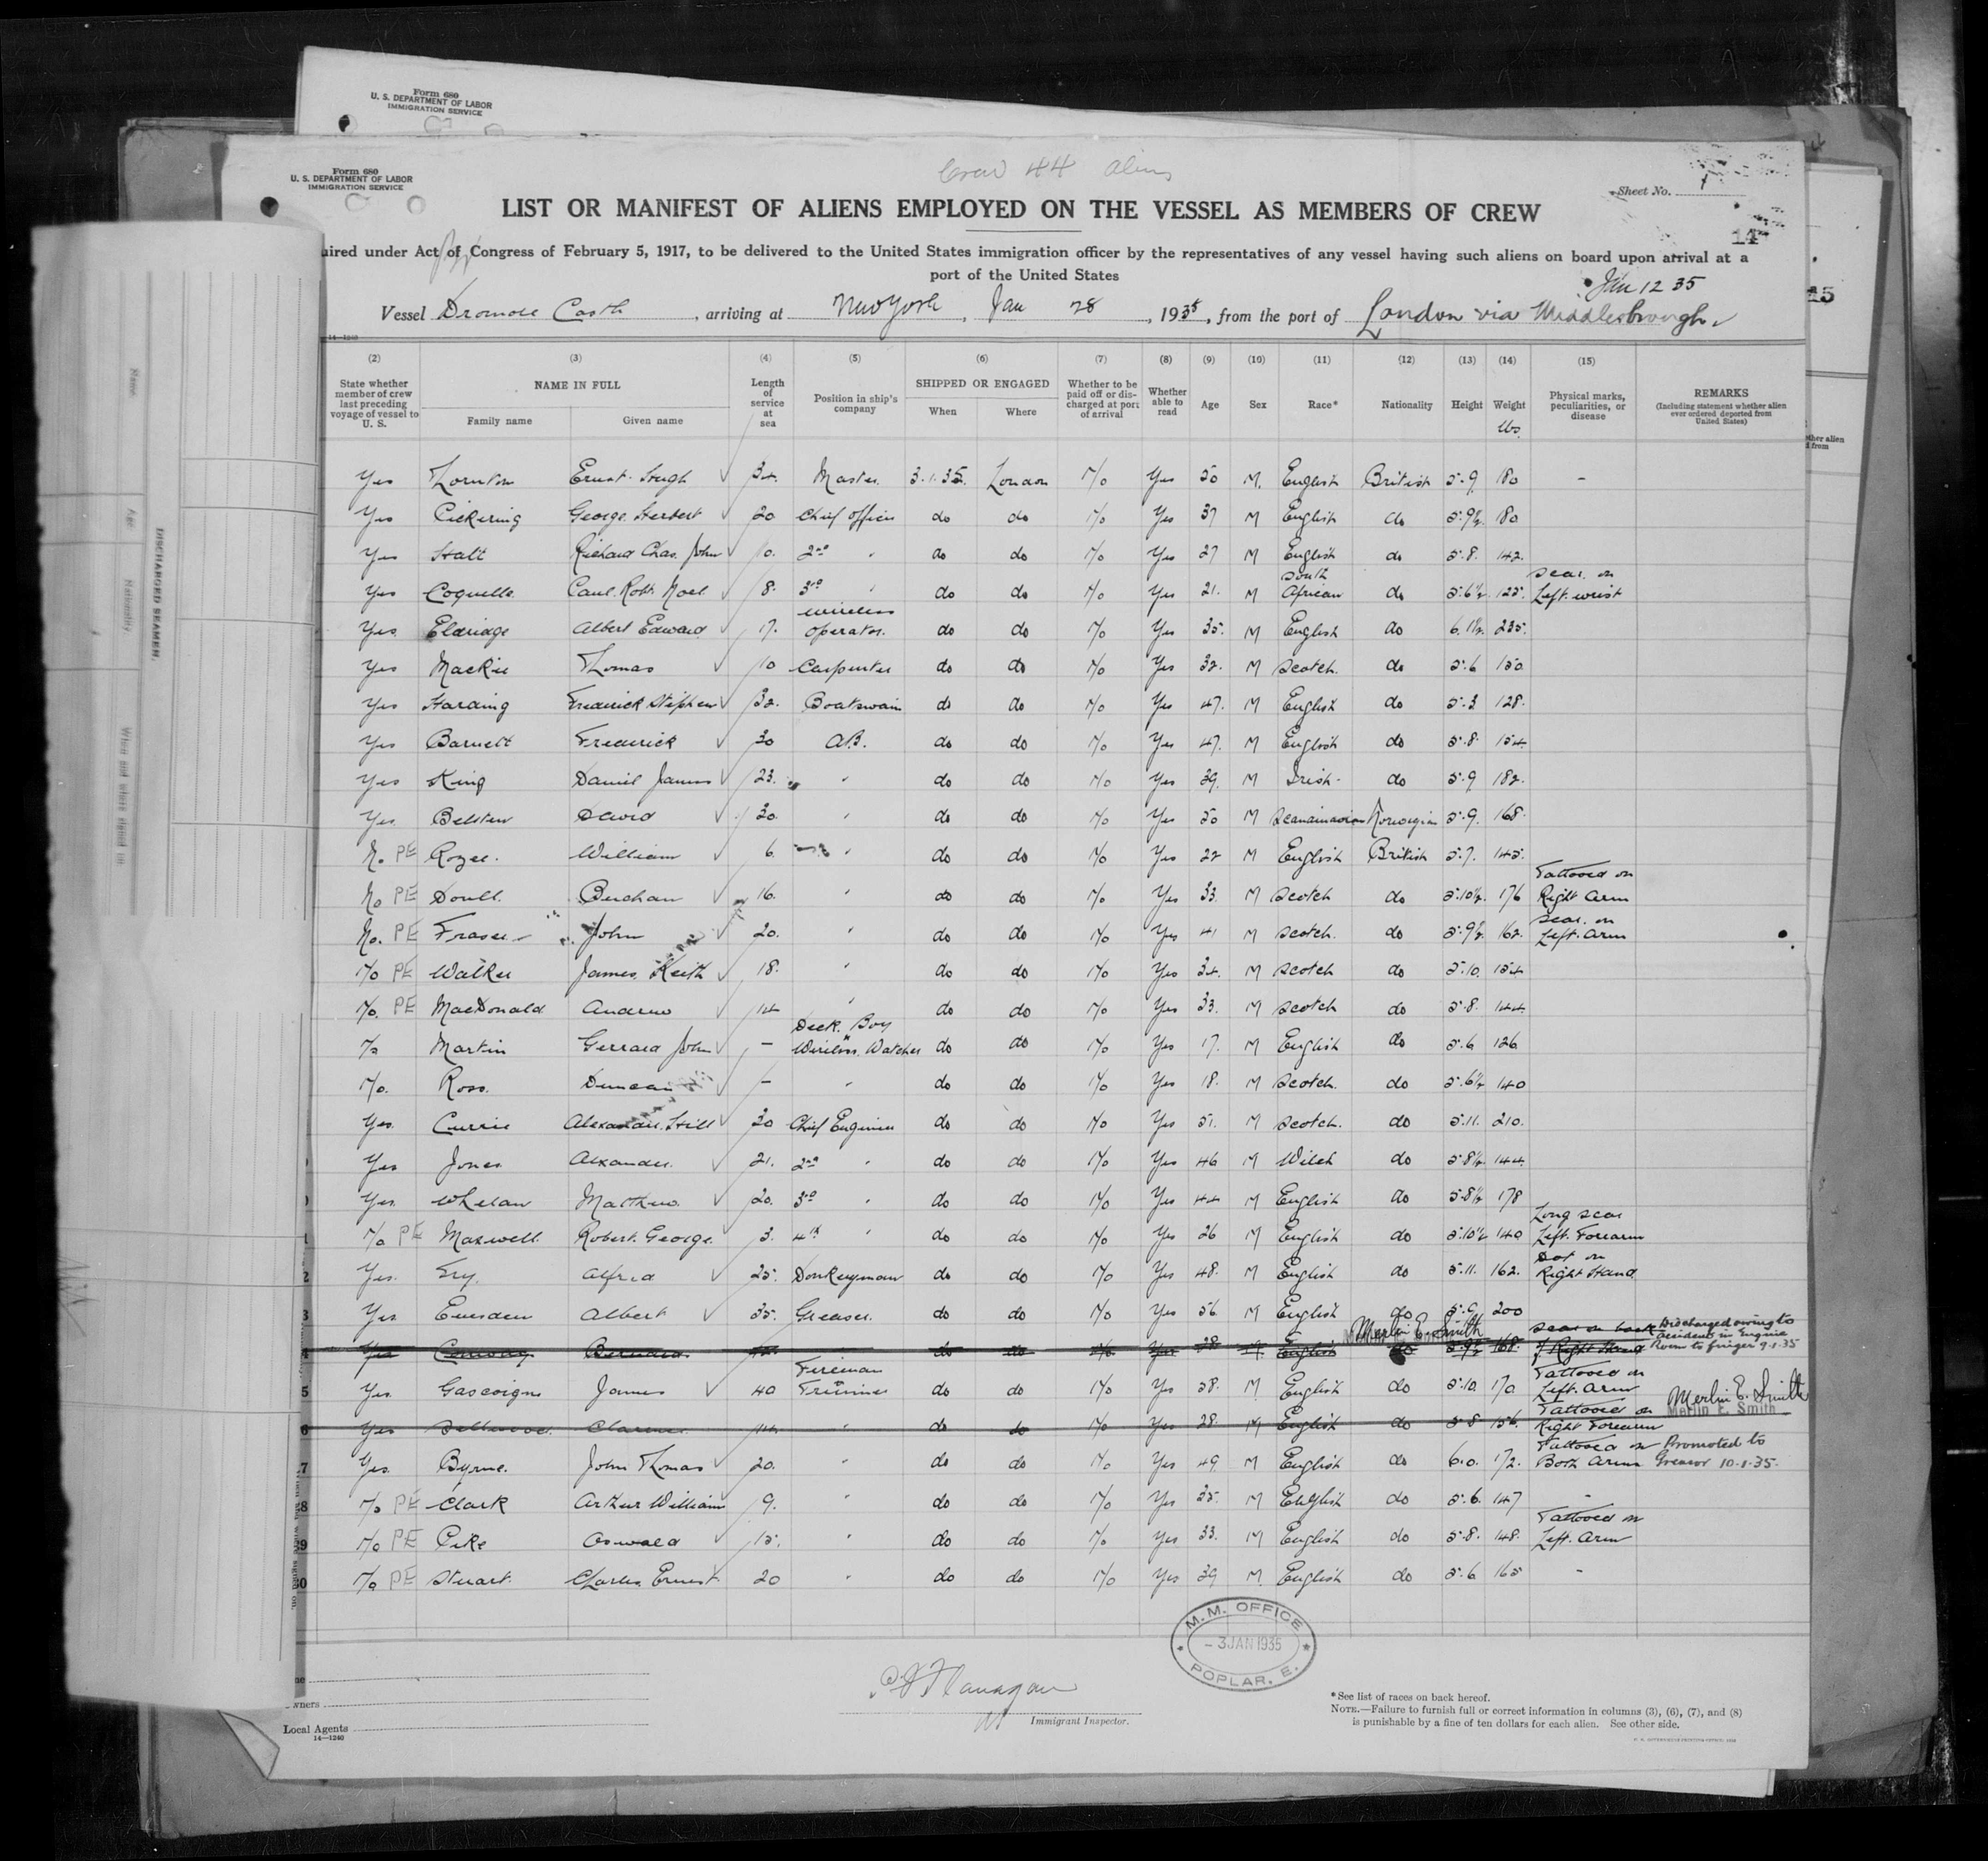 Form 680
U. S. DEPARTMENT OF LABOR
IMMIGRATION SERVICE
Form 680
U. S. DEPARTMENT OF LABOR
IMMIGRATION SERVICE
Crew 44 Aliens
Sheet No. 1
LIST OR MANIFEST OF ALIENS EMPLOYED ON THE VESSEL AS MEMBERS OF CREW
14
uired under Act of Congress of February 5, 1917, to be delivered to the United States immigration officer by the representatives of any vessel having such aliens on board upon arrival at a
port of the United States
Jan 12 35
15
Vessel Dromore Castle, arriving at New York, Jan 28, 1935, from the port of London via Middlesbrough
14—1240
(2) (3) (4) (5) (6) (7) (8) (9) (10) (11) (12) (13) (14) (15)
State whether member of crew last preceding voyage of vessel to U. S.
NAME IN FULL
Family name Given name
Length of service at sea
Position in ship's company
SHIPPED OR ENGAGED
When Where
Whether to be paid off or discharged at port of arrival
Whether able to read
Age Sex Race* Nationality Height Weight lbs.
Physical marks, peculiarities, or disease
REMARKS
(Including statement whether alien ever ordered deported from United States)
Yes Thornton Ernest Hugh 34. Master. 3.1.35. London No Yes 50 M. English British 5.9. 180 -
Yes Pickering George Herbert 20 Chief Officer do do No Yes 37 M English do 5.9½ 180
Yes Hatt Richard Chas. John 10. 2nd " do do No Yes 27 M English do 5.8. 142.
Yes Coquelle Paul Robt. Noel 8. 3rd " do do No Yes 21. M South African do 5.6½ 125. Scar. on Left. wrist
Yes. Eldridge Albert Edward 17. Wireless Operator. do do No Yes 35. M English do 6.1½ 235.
Yes Mackie Thomas 10 Carpenter do do No Yes 32. M Scotch. do 5.6 150
Yes Harding Frederick Stephen 32. Boatswain do do No Yes 47. M English do 5.3 128.
Yes Barnett Frederick 30 A.B. do do No Yes 47. M English do 5.8 154
Yes King Daniel James 23. " do do No Yes 39. M Irish do 5.9 182.
Yes. Belsten David 30. " do do No Yes 50 M Scandinavian Norwegian 5.9. 168.
No PE William 6. " do do No Yes 22 M English British 5.7. 145.
No PE Doull. Buchan 16. " do do No Yes 33. M Scotch do 5.10½ 176 Tattooed on Right Arm
No. PE Fraser John 20. " do do No Yes 41 M Scotch. do 5.9½ 162. Scar. on Left. Arm
No PE Walker James Keith 18. " do do No Yes 34. M Scotch do 5.10. 154
No. PE MacDonald Andrew 14 " do do No Yes 33. M Scotch do 5.8. 144
No Martin Gerrard John - Deck. Boy Wireless Watcher do do No Yes 17. M English do 5.6 126
No. Ross. Duncan - " do do No Yes 18. M Scotch. do 5.6½ 140
Yes. Currie Alexander. Hill 30 Chief Engineer do do No Yes 51. M Scotch. do 5.11. 210.
Yes Jones Alexander. 21. 2nd " do do No Yes 46 M Welch do 5.8½ 144
Yes. Whelan Matthew. 20. 3rd " do do No Yes 44 M English do 5.8½ 178
No PE Maxwell Robert. George. 3. 4th " do do No Yes 26 M English do 5.10½ 140 Long scar Left. Forearm
Yes. Fry. Alfred 25. Donkeyman do do No Yes 48. M English do 5.11. 162. Dot on Right Hand
Yes Eversden Albert 35. Greaser. do do No Yes 56 M English do 5.9. 200
Merlin E. Smith
Yes Conway Bernard do do No Yes 38 M. English do 5.9½ 168. Scar on back of Right Hand Discharged owing to accident in Engine Room to finger 9.1.35
Yes. Gascoigne James 40 Fireman Trimmer do do No Yes 58. M English do 5.10. 170 Tattooed on Left. Arm
Merlin E. Smith
Merlin E. Smith
Yes Clarence " do do No Yes 28. M English do 5.8 156. Tattooed on Right Forearm
Yes. Byrne. John Thomas 20. " do do No Yes 49 M English do 6.0. 172. Tattooed on Both Arms Promoted to Greaser 10.1.35.
No PE Clark Arthur William 9. " do do No Yes 25. M English do 5.6. 147 -
No PE Pike Oswald 15. " do do No Yes 33. M English do 5.8. 148. Tattooed on Left. Arm
No PE Stuart. Charles Ernest 20 " do do No Yes 39 M. English do 5.6 165 -
M. M. OFFICE
- 3 JAN 1935
POPLAR. E.
Flanagan
Immigrant Inspector.
wners
Local Agents
14—1240
*See list of races on back hereof.
NOTE.—Failure to furnish full or correct information in columns (3), (6), (7), and (8)
is punishable by a fine of ten dollars for each alien. See other side.
DISCHARGED SEAMEN.
Name
Age
Nationality